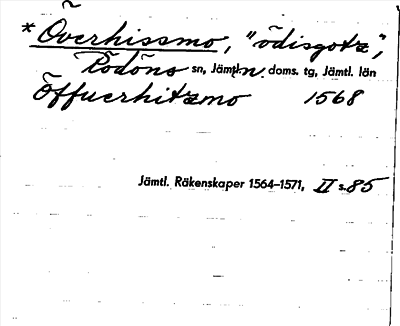 * Överhissmo, "ödisgotz",
Rödöns sn, Jämt. n. doms. tg, Jämtl. län
Öffuerhitzmo 1568
Jämtl. Räkenskaper 1564–1571, II s. 85